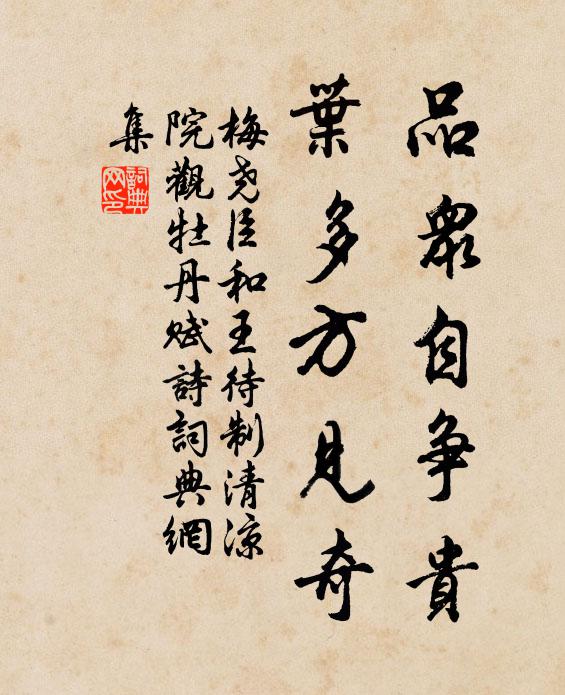 品衆自争貴
葉多方見奇
梅尧臣和王待制清涼
院觀牡丹赋詩詞典網
集
詞典網印